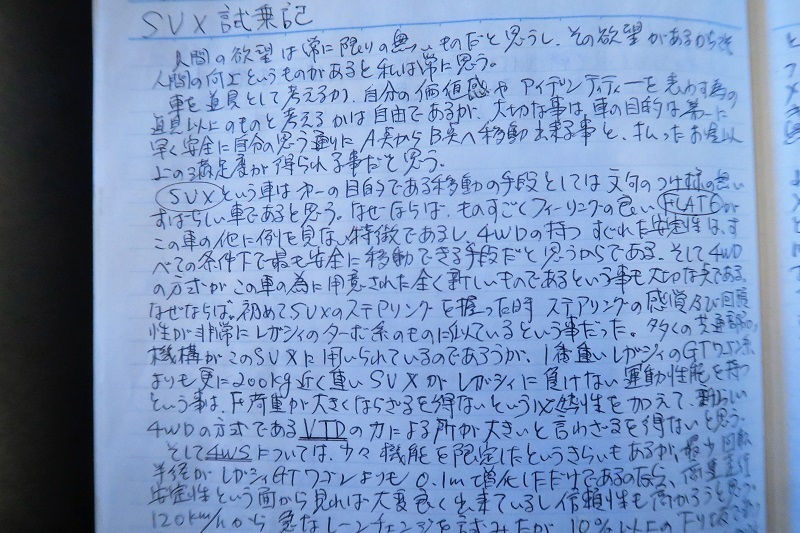 SVX 試乗記
人間の欲望は常に限りの無いものだと思うし、その欲望があるからこそ
人間の向上というものがあると私は常に思う。
車を道具として考えるか、自分の価値感やアイデンティティーを表わす為の
道具以上のものと考えるかは自由であるが、大切な事は、車の目的は第一に
早く安全に自分の思う通りにA点からB点へ移動出来る事と、払ったお金以
上の満足度が得られる事だと思う。
SVXという車は第一の目的である移動の手段としては文句のつけ様の無い
すばらしい車であると思う。なぜならば、ものすごくフィーリングの良いFLAT6が
この車の他に例を見ない特徴であるし、4WDの持つすぐれた安定性は、す
べての条件下で最も安全に移動できる手段だと思うからである。そして4WD
の方式がこの車の為に用意された全く新しいものであるという事も大切な点である。
なぜならば、初めてSVXのステアリングを握った時ステアリングの感覚及び回頭
性が非常にレガシィのターボ系のものに似ているという事だった。多くの共通部の
機構がこのSVXに用いられているのであろうが、1番重いレガシィのGTワゴン系
よりも更に200kg近く重いSVXがレガシィに負けない運動性能を持つ
という事は、F荷重が大きくならざるを得ないという必然性を加えて、新らしい
4WDの方式であるVTDの力による所が大きいと言わざるを得ないと思う。
そして4WSについては、少々機能を限定したというきらいもあるが、最少回転
半径がレガシィGTワゴンよりも0.1m増化しただけであるのなら、直進
安定性という面から見れば大変良く出来ているし信頼性も高かろうと思う。
120km/hから急なレーンチェンジを試みたが、10%以上の